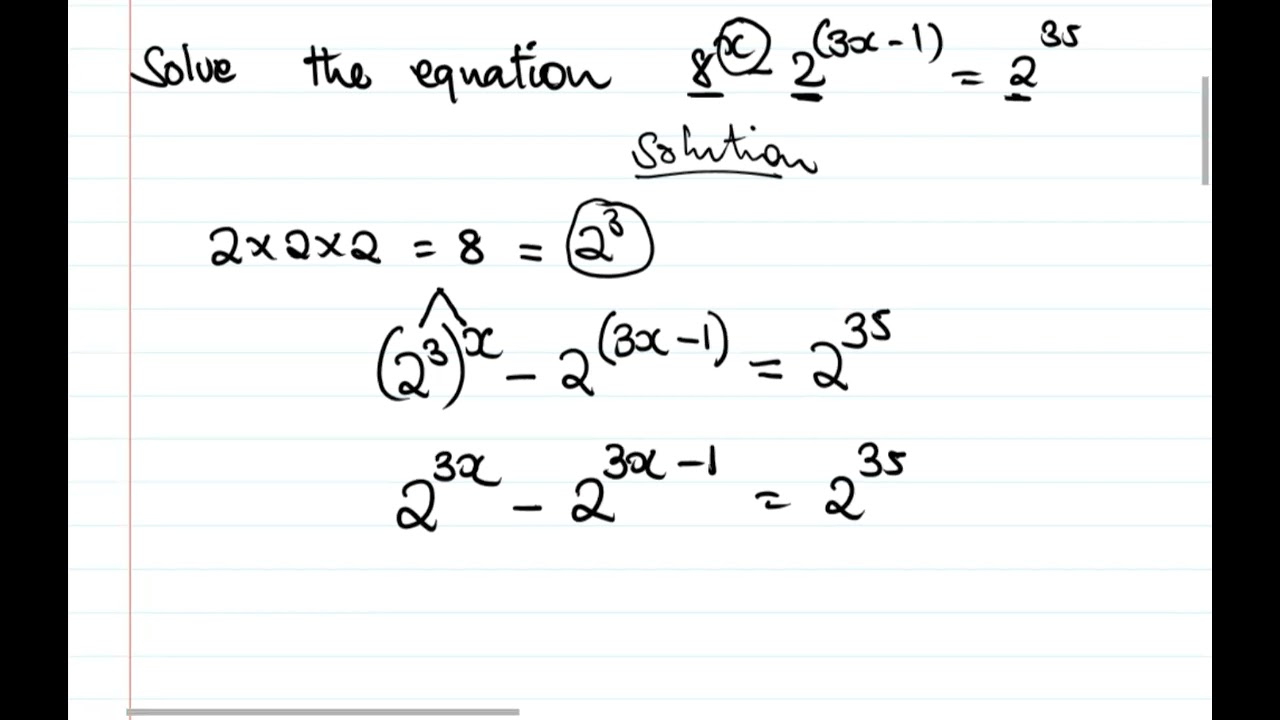 Solve the equation 8ˣ - 2⁽³ˣ⁻¹⁾ = 2³⁵
Solution
2×2×2 = 8 = 2³
(2³)ˣ - 2⁽³ˣ⁻¹⁾ = 2³⁵
2³ˣ - 2³ˣ⁻¹ = 2³⁵